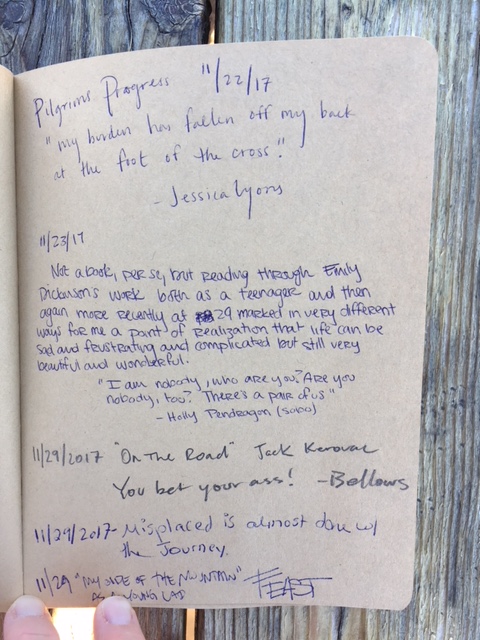 Pilgrims Progress 11/22/17
"my burden has fallen off my back
at the foot of the cross."
- Jessica Lyons
11/23/17
Not a book, per se, but reading through Emily
Dickinson's work both as a teenager and then
again more recently at 29 marked in very different
ways for me a point of realization that life can be
sad and frustrating and complicated but still very
beautiful and wonderful.
"I am nobody, who are you? Are you
nobody, too? There's a pair of us"
- Holly Pendragon (sobo)
11/29/2017 "On The Road" Jack Kerouac
You bet your ass! - Bellows
11/29/2017- Misplaced is almost done w/
the Journey.
11/29 "MY SIDE OF THE MOUNTAIN"
AS A YOUNG LAD FEAST